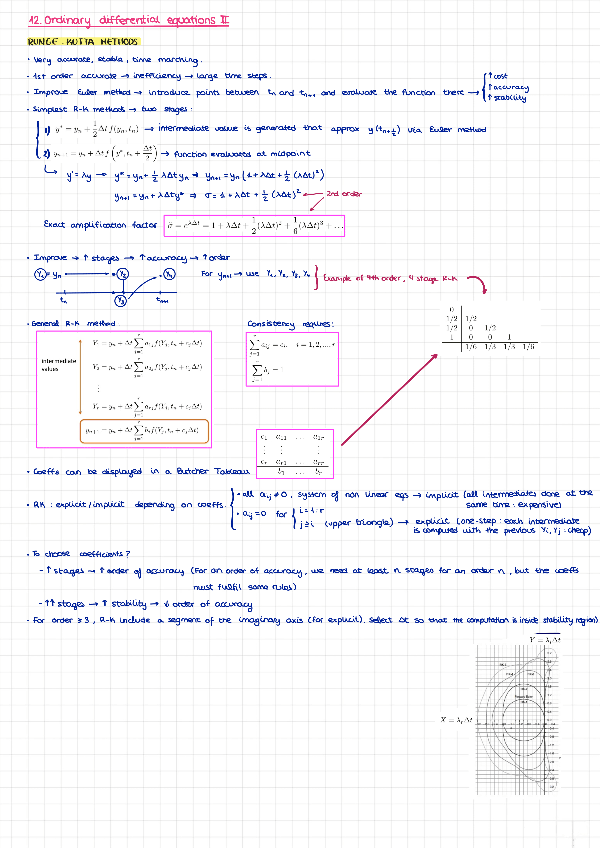 12. Ordinary differential equations II
RUNGE-KUTTA METHODS
• Very accurate, stable, time marching.
• 1st order accurate → inefficiency → large time steps.
• Improve Euler method → introduce points between tn and tn+1 and evaluate the function there → { ↑ cost
↑ accuracy
↑ stability
• Simplest R-K methods → two stages:
1) y* = yn + 1/2 Δt f(yn, tn) → intermediate value is generated that approx y(tn+1/2) via Euler method
2) yn+1 = yn + Δt f(y*, tn + Δt/2) → function evaluated at midpoint
y' = λy → y* = yn + 1/2 λΔt yn ⇒ yn+1 = yn (1 + λΔt + 1/2 (λΔt)²)
yn+1 = yn + λΔt y* ⇒ σ = 1 + λΔt + 1/2 (λΔt)² ← 2nd order
Exact amplification factor σ = e^λΔt = 1 + λΔt + 1/2 (λΔt)² + 1/6 (λΔt)³ + ...
• Improve → ↑ stages → ↑ accuracy → ↑ order
Y1 = yn Y2 Y4 For yn+1 → use Y1, Y2, Y3, Y4 } Example of 4th order, 4 stage R-K
tn Y3 tn+1
0
1/2 1/2
1/2 0 1/2
1 0 0 1
1/6 1/3 1/3 1/6
• General R-K method. Consistency requires:
intermediate
values
Y1 = yn + Δt Σ a1j f(Yj, tn + cjΔt)
Y2 = yn + Δt Σ a2j f(Yj, tn + cjΔt)
⋮
Yr = yn + Δt Σ arj f(Yj, tn + cjΔt)
yn+1 = yn + Δt Σ bj f(Yj, tn + cjΔt)
Σ aij = ci, i = 1, 2, ..., r
Σ bj = 1
c1 a11 ... a1r
⋮ ⋮ ⋮
cr ar1 ... arr
b1 ... br
• Coeffs can be displayed in a Butcher Tableau
• RK: explicit/implicit depending on coeffs. { • all aij ≠ 0, system of non linear eqs → implicit (all intermediates done at the
same time: expensive)
• aij = 0 for { i = 1:r
j ≥ i (upper triangle) → explicit (one-step: each intermediate
is computed with the previous Yi, Yj: cheap)
• To choose coefficients?
- ↑ stages → ↑ order of accuracy (For an order of accuracy, we need at least n stages for an order n, but the coeffs
must fulfil some rules)
- ↑↑ stages → ↑ stability → order of accuracy
• For order ≥ 3, R-K include a segment of the imaginary axis (for explicit). Select Δt so that the computation is inside stability region)
Y = λiΔt
X = λrΔt